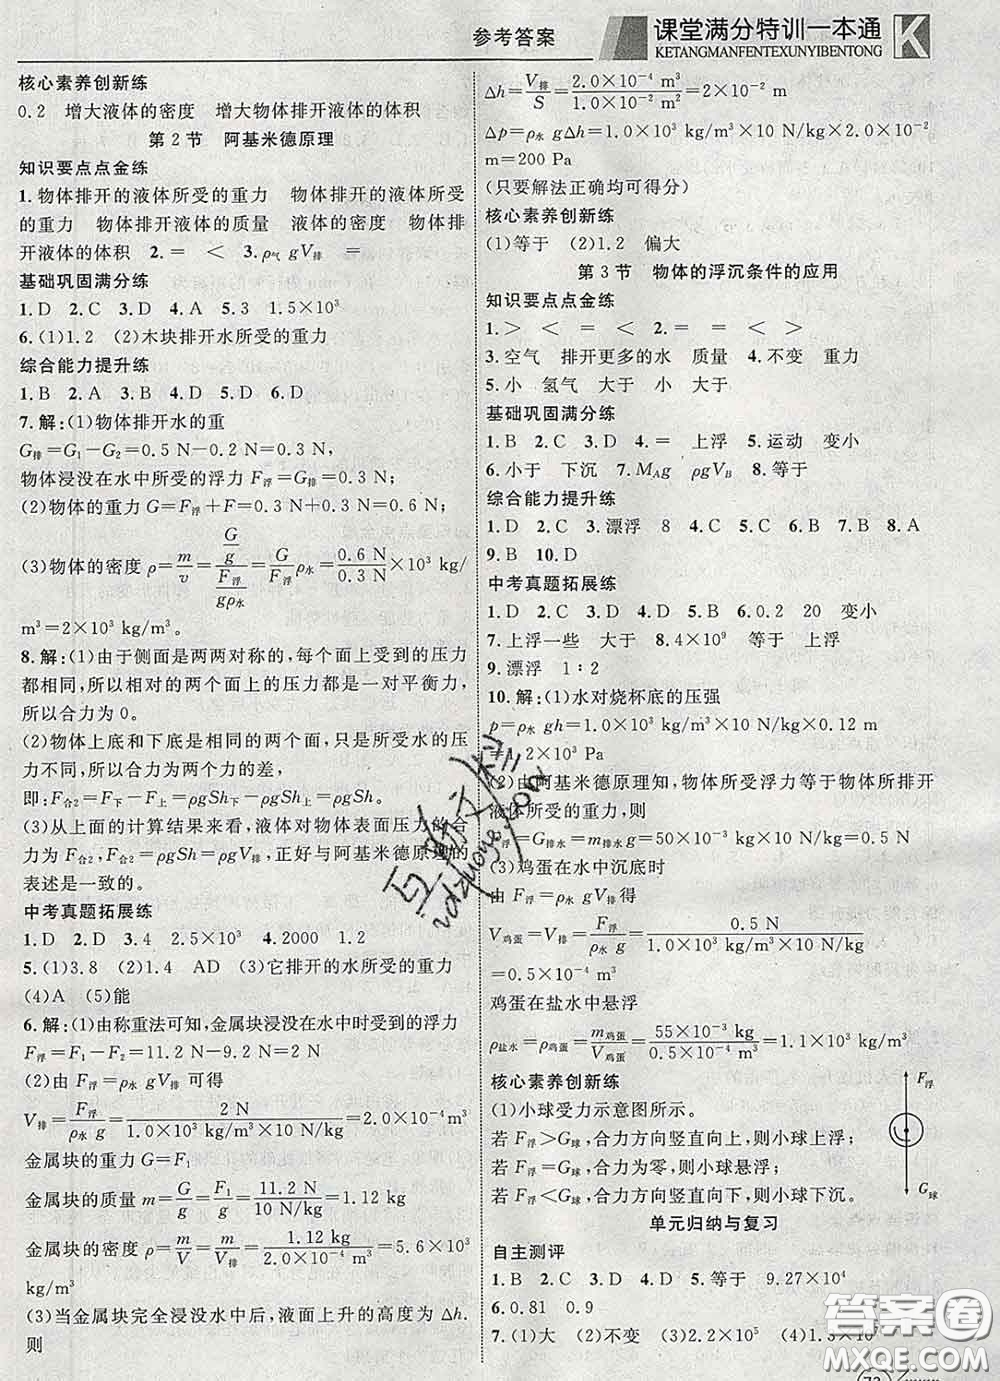 参考答案
课堂满分特训一本通
KETANGMANFENTEXUNYIBENTONG
K
核心素养创新练
0.2 增大液体的密度 增大物体排开液体的体积
第2节 阿基米德原理
知识要点点金练
1.物体排开的液体所受的重力 物体排开的液体所受
的重力 物体排开液体的质量 液体的密度 物体排
开液体的体积 2.= < 3.ρ气 gV排 =
基础巩固满分练
1.D 2.C 3.D 4.A 5.3 1.5×10³
6.(1)1.2 (2)木块排开水所受的重力
综合能力提升练
1.B 2.A 3.B 4.D 5.D 6.D
7.解:(1)物体排开水的重
G排=G1-G2=0.5 N-0.2 N=0.3 N;
物体浸没在水中所受的浮力 F浮=G排=0.3 N;
(2)物体的重力 G=F浮+F=0.3 N+0.3 N=0.6 N;
(3)物体的密度 ρ=m/v=(G/g)/(F浮/gρ水)=G/F浮 ρ水=0.6 N/0.3 N×10³ kg/
m³=2×10³ kg/m³。
8.解:(1)由于侧面是两两对称的,每个面上受到的压力
都相同,所以相对的两个面上的压力都是一对平衡力,
所以合力为0。
(2)物体上底和下底是相同的两个面,只是所受水的压
力不同,所以合力为两个力的差,
即:F合2=F下-F上=ρgSh下-ρgSh上=ρgSh。
(3)从上面的计算结果来看,液体对物体表面压力的合
力为 F合2,F合2=ρgSh=ρgV排,正好与阿基米德原理的
表述是一致的。
中考真题拓展练
1.D 2.D 3.4 2.5×10³ 4.2000 1.2
5.(1)3.8 (2)1.4 AD (3)它排开的水所受的重力
(4)A (5)能
6.解:(1)由称重法可知,金属块浸没在水中时受到的浮力
F浮=F1-F2=11.2 N-9.2 N=2 N
(2)由 F浮=ρ水 gV排 可得
V排=F浮/ρ水 g=2 N/1.0×10³ kg/m³×10 N/kg=2.0×10⁻⁴m³
金属块的重力 G=F1
金属块的质量 m=G/g=F1/g=11.2 N/10 N/kg=1.12 kg
金属块的密度 ρ=m/V=m/V排=1.12 kg/2.0×10⁻⁴ m³=5.6×10³
kg/m³
(3)当金属块完全浸没水中后,液面上升的高度为 Δh.
则
Δh=V排/S=2.0×10⁻⁴ m³/1.0×10⁻² m²=2×10⁻² m
Δp=ρ水 gΔh=1.0×10³ kg/m³×10 N/kg×2.0×10⁻²
m=200 Pa
(只要解法正确均可得分)
核心素养创新练
(1)等于 (2)1.2 偏大
第3节 物体的浮沉条件的应用
知识要点点金练
1.> < = < 2.= = < >
3.空气 排开更多的水 质量 4.不变 重力
5.小 氢气 大于 小 大于
基础巩固满分练
1.B 2.C 3.D 4.= 上浮 5.运动 变小
6.小于 下沉 7.MAg ρgVB 8.等于
综合能力提升练
1.D 2.C 3.漂浮 8 4.C 5.D 6.B 7.B 8.A
9.B 10.D
中考真题拓展练
1.D 2.C 3.D 4.D 5.B 6.0.2 20 变小
7.上浮一些 大于 8.4×10⁹ 等于 上浮
9.漂浮 1:2
10.解:(1)水对烧杯底的压强
p=ρ水 gh=1.0×10³ kg/m³×10 N/kg×0.12 m
=1.2×10³ Pa
(2)由阿基米德原理知,物体所受浮力等于物体所排开
液体所受的重力,则
F浮=G排水=m排水 g=50×10⁻³ kg×10 N/kg=0.5 N
(3)鸡蛋在水中沉底时
由 F浮=ρ水 gV排得
V鸡蛋=V排=F浮/ρ水 g=0.5 N/1.0×10³ kg/m³×10 N/kg
=0.5×10⁻⁴ m³
鸡蛋在盐水中悬浮
ρ盐水=ρ鸡蛋=m鸡蛋/V鸡蛋=55×10⁻³ kg/0.5×10⁻⁴ m³=1.1×10³ kg/m³
核心素养创新练
(1)小球受力示意图所示。
若 F浮>G球,合力方向竖直向上,则小球上浮;
若 F浮=G球,合力为零,则小球悬浮;
若 F浮<G球,合力方向竖直向下,则小球下沉。
F浮
G球
单元归纳与复习
自主测评
1.B 2.C 3.D 4.D 5.等于 9.27×10⁴
6.0.81 0.9
7.(1)大 (2)不变 (3)2.2×10⁵ (4)1.3×10³
答案圈
MXQE.COM